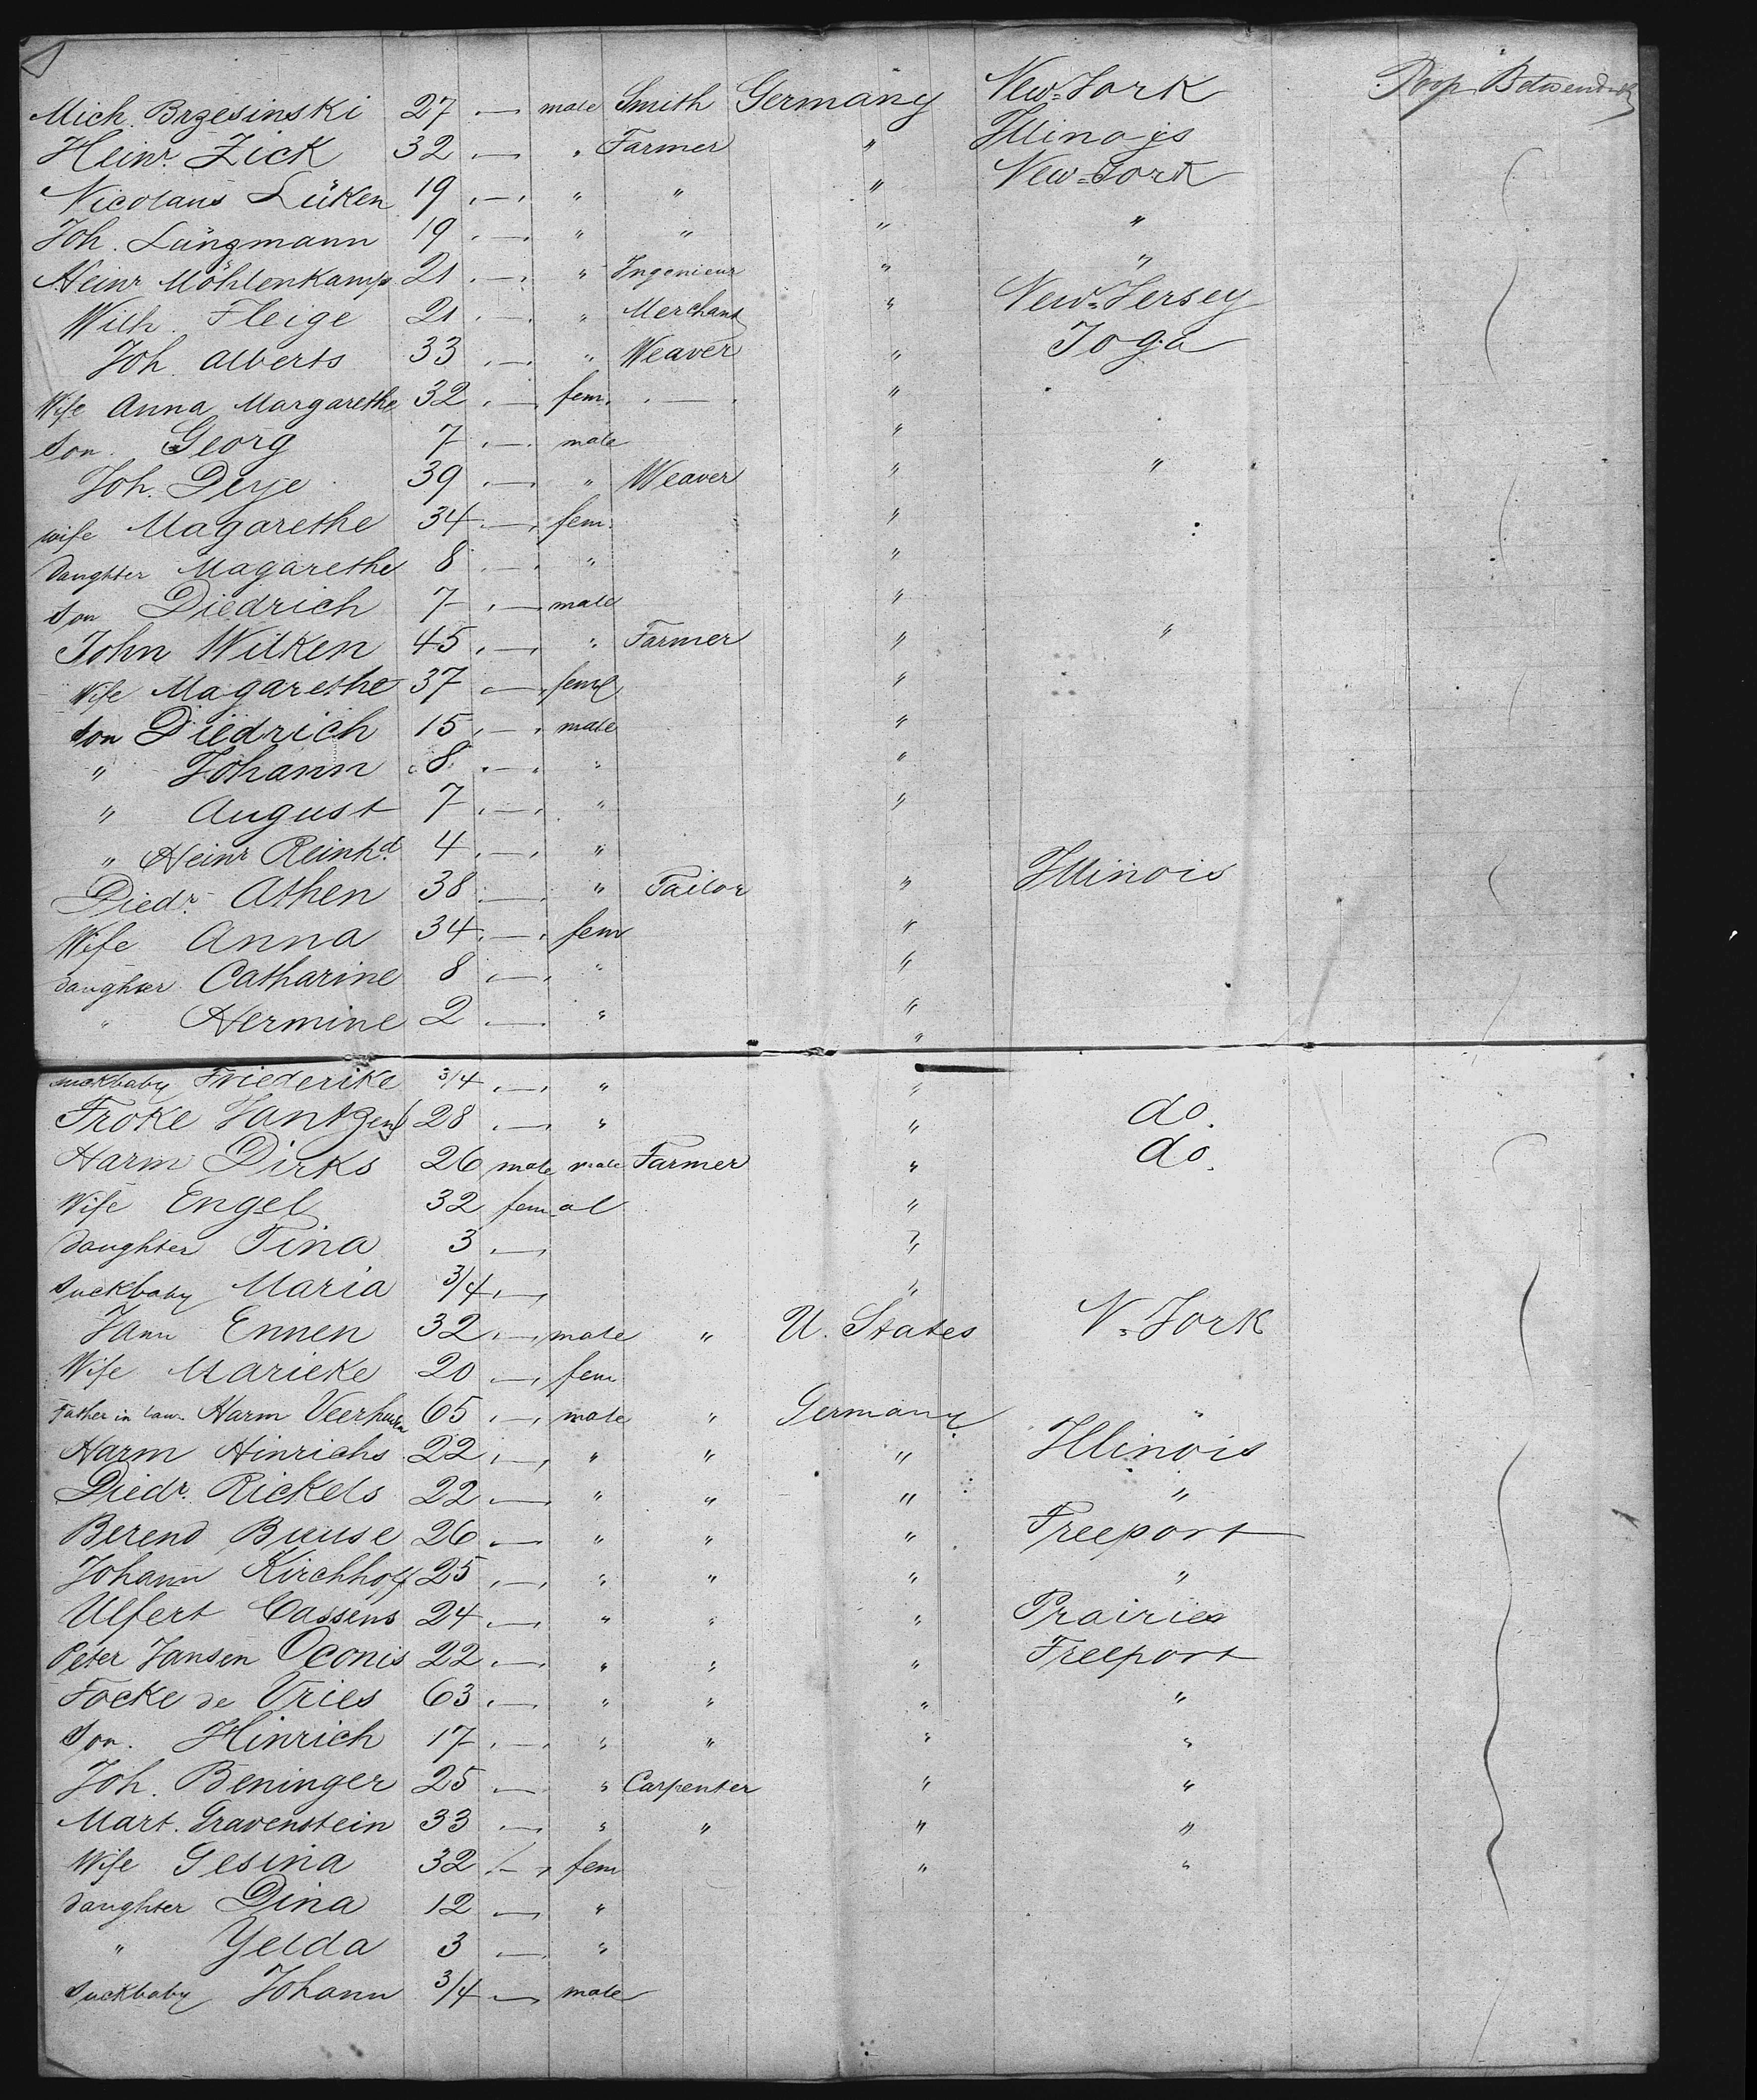 Mich. Brzesinski 27 . — male Smith Germany New-York Poop Betwend-ck
Heinr. Zick 32 . — " Farmer " Illinois
Nicolaus Lüken 19 . — . " " " New-York
Joh. Lüngmann 19 . — . " " " "
Heinr Möhlenkamp. 21 . — . " Ingenieur " "
Wilh. Fleige 21 . — . " Merchant " New-Jersey
Joh. Alberts 33 . — . " Weaver " Joga
Wife Anna Margarethe 32 . — . fem. . — . "
Son. Georg 7 . — . male "
Joh. Derje 39 . — . " Weaver " "
wife Magarethe 34 . — . fem. "
Daughter Magarethe 8 . — . " "
Son Diedrich 7 . — male "
John Wilken 45 . — . " Farmer " "
Wife Magarethe 37 . — . feml "
Son Diedrich 15 . — . male "
" Johann 8 . — . " "
" August 7 . — . " "
" Heinr Reinhd. 4 . — . " "
Diedr. Athen 38 . — " Tailor " Illinois
Wife Anna 34 . — . fem "
daughter Catharine 8 . — . " "
" Hermine 2 . — " "
"
suckbaby Friederike 3/4 . — . " "
Froke Jantzen 28 . — . " " do.
Harm Dirks 26 male male Farmer " do.
Wife Engel 32 fem al "
Daughter Tina 3 . — , "
Suckbaby Maria 3/4 . — , "
Jann Ennen 32 . — , male " U. States N-York
Wife Marieke 20 . — , fem
Father in law Harm Veerhusen 65 . — , male " Germany "
Harm Hinrichs 22 . — , " " " Illinois
Diedr. Rickels 22 . — , " " " "
Berend Buuse 26 . — " " " Freeport
Johann Kirchhoff 25 . — , " " " "
Ulfert Cassens 24 . — , " " " Prairies
Peter Jansen Oconis 22 . — . " " " Freeport
Focke de Vries 63 . — , " " " "
Son. Hinrich 17 . — . " " " "
Joh. Beninger 25 . — " Carpenter " "
Mart. Gravenstein 33 . — , " " " "
Wife Gesina 32 . — , fem " "
Daughter Dina 12 . — , "
" Yelda 3 . — . "
Suckbaby Johann 3/4 — , male